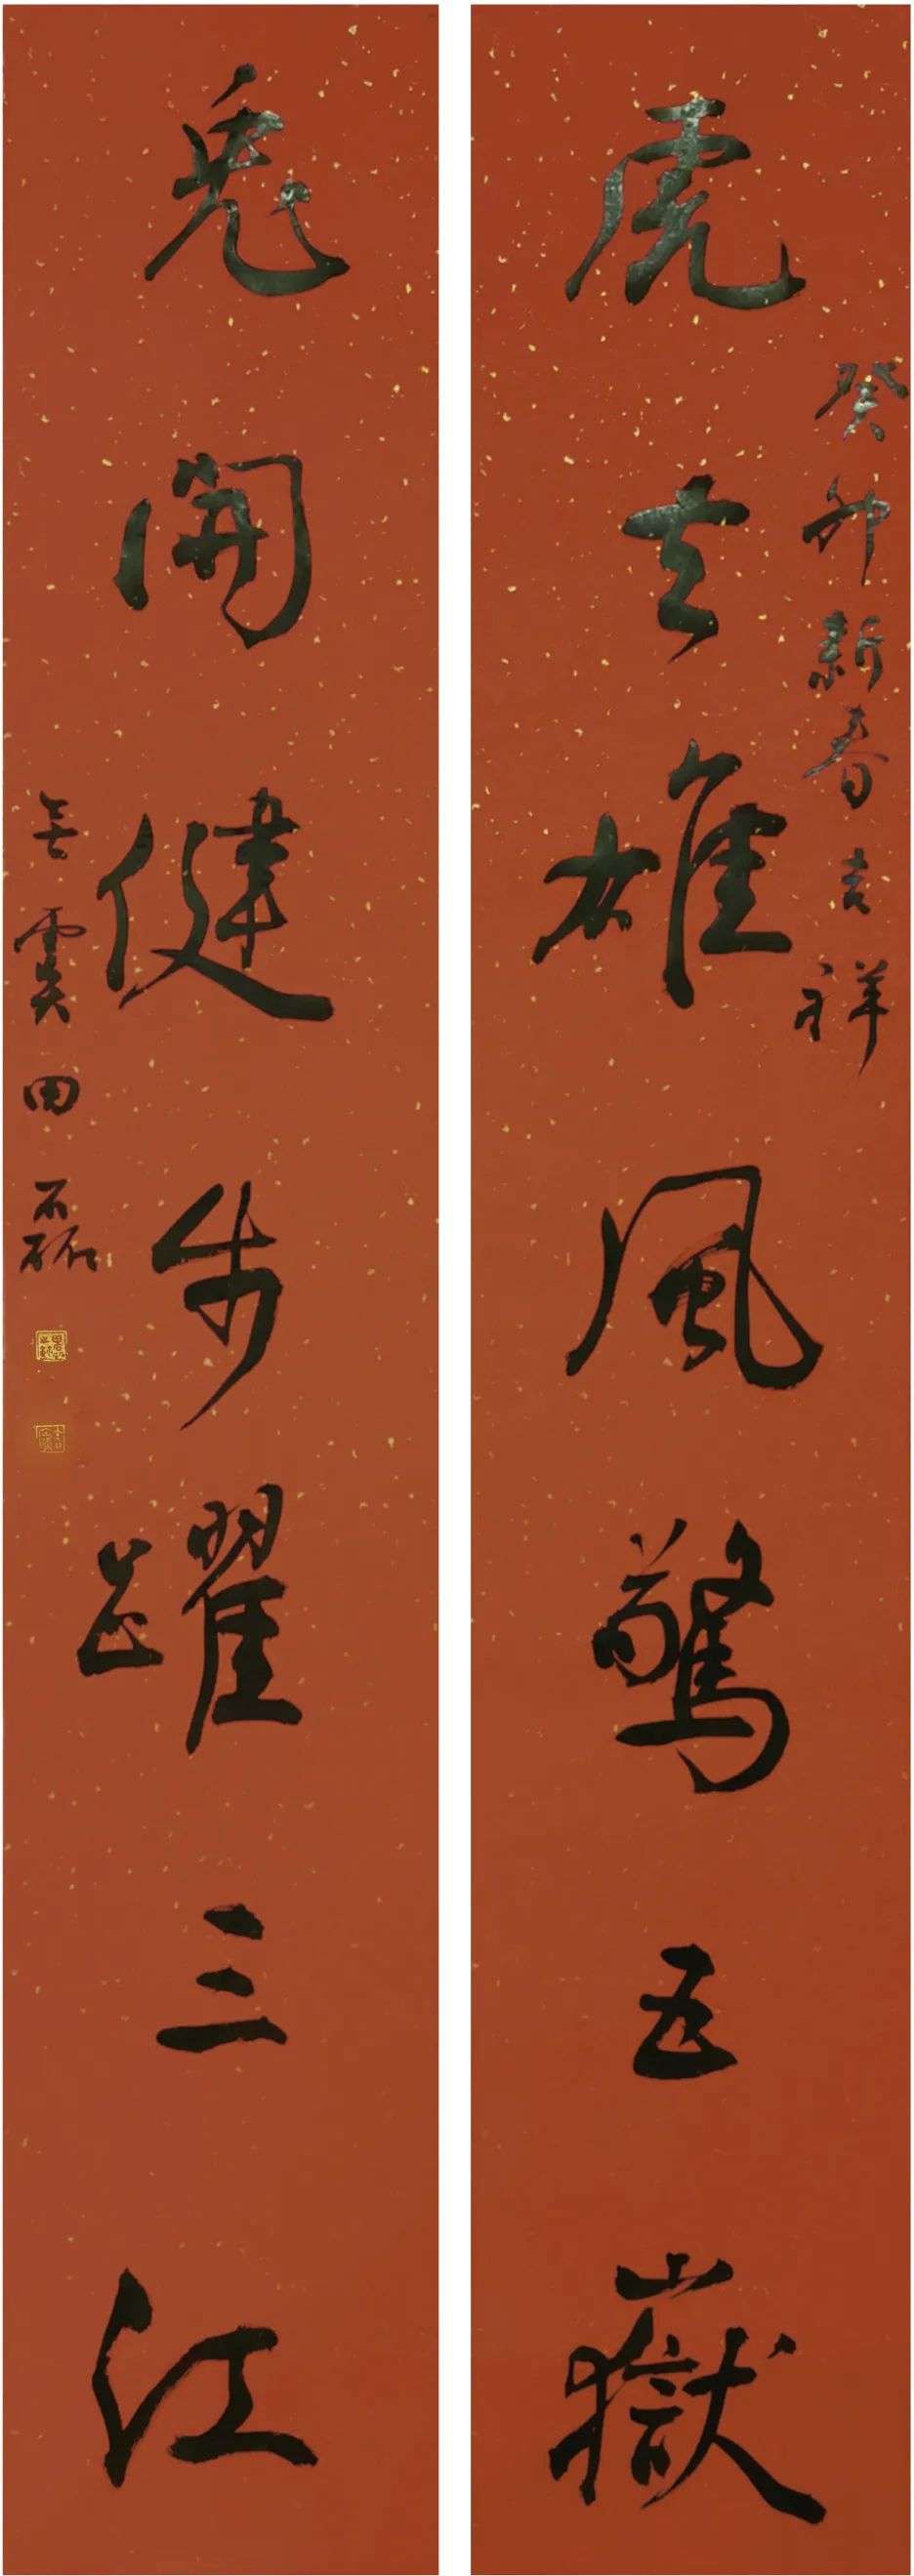 癸卯新春吉祥
虎去雄風驚五嶽
兔開健步躍三江
田磊